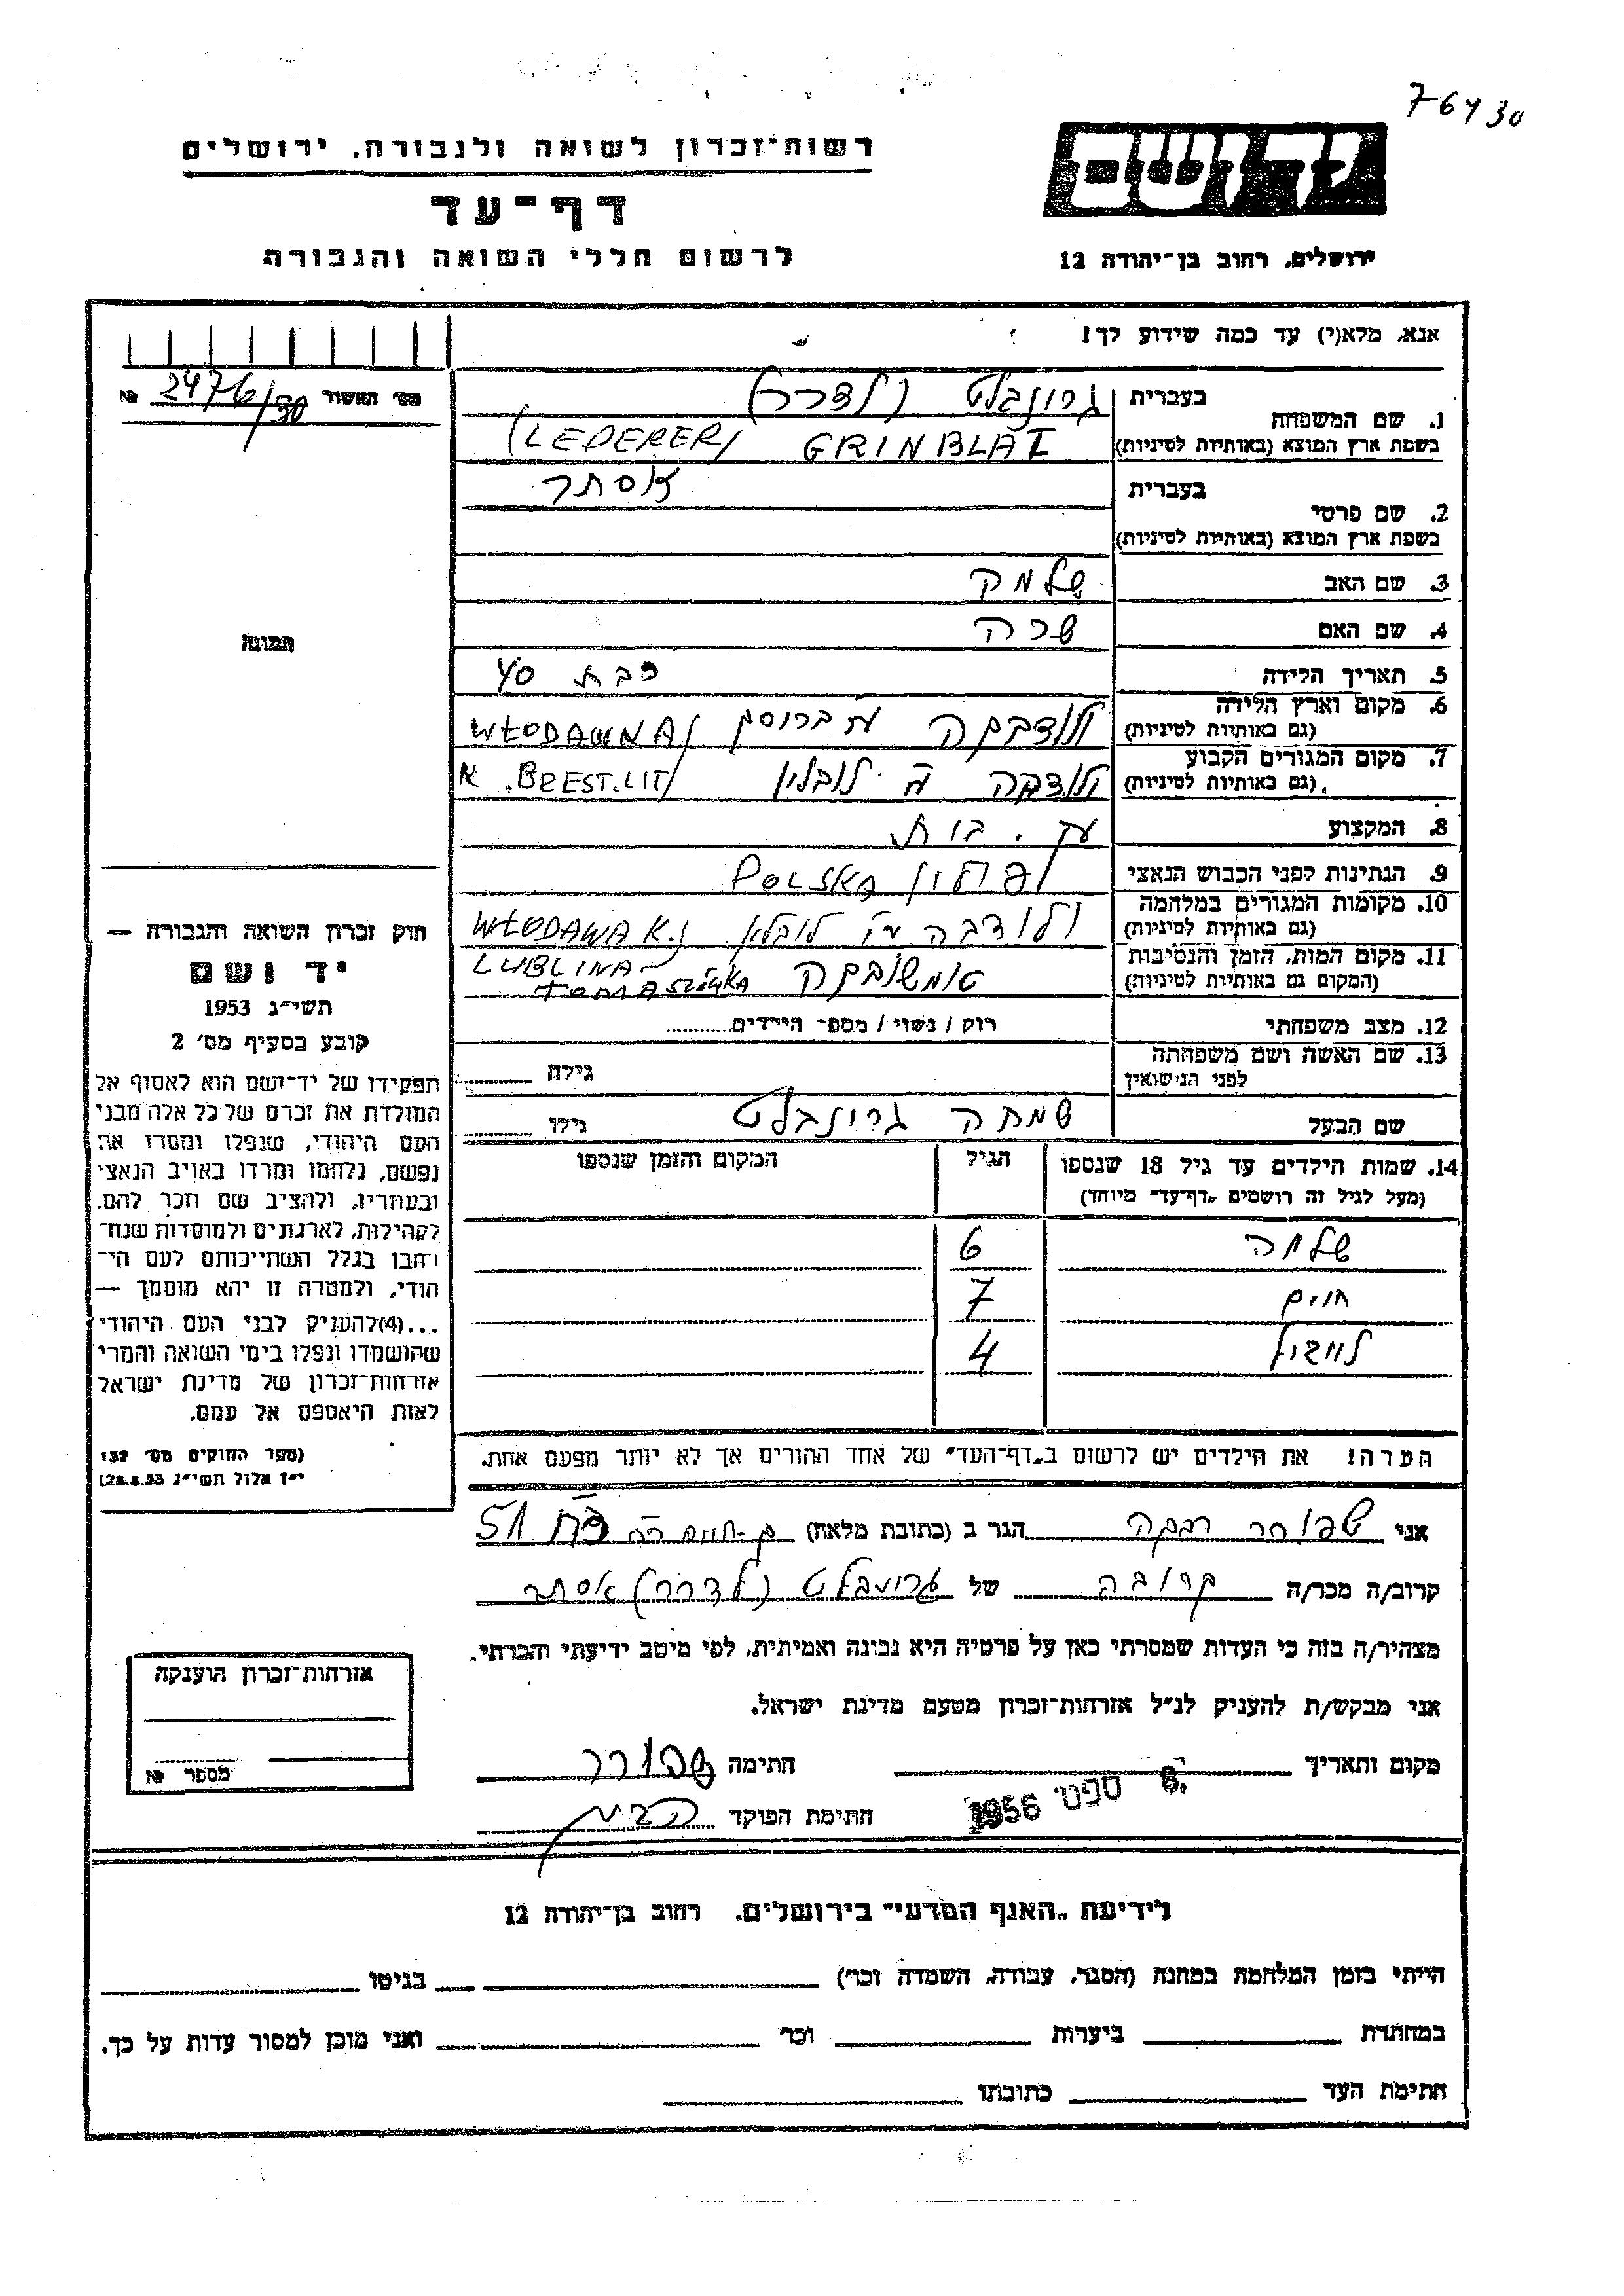 76430
רשות־זכרון לשואה ולגבורה, ירושלים
דף־עד
לרשום חללי השואה והגבורה
יד ושם
ירושלים, רחוב בן־יהודה 12
אנא, מלא(י) עד כמה שידוע לך!
מס׳ האשור 2476/30 №
1. שם המשפחה
בעברית גרונבלט (לדרר)
בשפת ארץ המוצא (באותיות לטיניות) GRINBLAT (LEDERER)
2. שם פרטי
בעברית אסתר
בשפת ארץ המוצא (באותיות לטיניות)
3. שם האב שלמה
4. שם האם שרה
5. תאריך הלידה כבת 40
6. מקום וארץ הלידה
(גם באותיות לטיניות) WŁODAWNA)
7. מקום המגורים הקבוע
(גם באותיות לטיניות) ולודבה לובלין K. BREST.LIT)
8. המקצוע עק. בית
9. הנתינות לפני הכבוש הנאצי פולין POLSKA
10. מקומות המגורים במלחמה
(גם באותיות לטיניות) ולודבה לובלין WŁODAWA K.
LUBLINA
11. מקום המות, הזמן והנסיבות
(המקום גם באותיות לטיניות) טומשובקה TOMASZÓWKA
12. מצב משפחתי רוק / נשוי / מספ־ הילדים
13. שם האשה ושם משפחתה
לפני הנישואין גילה
שם הבעל שמחה גרונבלט גילו
14. שמות הילדים עד גיל 18 שנספו הגיל המקום והזמן שנספו
(מעל לגיל זה רושמים „דף־עד״ מיוחד)
שלמה 6
חיים 7
4
הערה! את הילדים יש לרשום ב„דף־העד״ של אחד ההורים אך לא יותר מפעם אחת.
תמונה
חוק זכרון השואה והגבורה —
יד ושם
תשי״ג 1953
קובע בסעיף מס׳ 2
תפקידו של יד־ושם הוא לאסוף אל
המולדת את זכרם של כל אלה מבני
העם היהודי, שנפלו ומסרו את
נפשם, נלחמו ומרדו באויב הנאצי
ובעוזריו, ולהציב שם וזכר להם,
לקהילות, לארגונים ולמוסדות שנח־
רבו בגלל השתייכותם לעם הי־
הודי, ולמטרה זו יהא מוסמך —
...(4)להעניק לבני העם היהודי
שהושמדו ונפלו בימי השואה והמרי
אזרחות־זכרון של מדינת ישראל
לאות היאספם אל עמם.
(ספר החוקים מס׳ 132
י״ז אלול תשי״ג 28.8.53)
אני רבקה הגר ב (כתובת מלאה) 51
קרוב/ה מכר/ה קרובה של גרונבלט (לדרר) אסתר
מצהיר/ה בזה כי העדות שמסרתי כאן על פרטיה היא נכונה ואמיתית, לפי מיטב ידיעתי והכרתי.
אני מבקש/ת להעניק לנ״ל אזרחות־זכרון מטעם מדינת ישראל.
מקום ותאריך 8. ספט׳ 1956 חתימה
חתימת הפוקד
אזרחות־זכרון הוענקה
מספר №
לידיעת „האגף המדעי״ בירושלים, רחוב בן־יהודה 12
הייתי בזמן המלחמה במחנה (הסגר, עבודה, השמדה וכו׳) בגיטו
במחתרת ביערות וכו׳ ואני מוכן למסור עדות על כך.
חתימת העד כתובתו